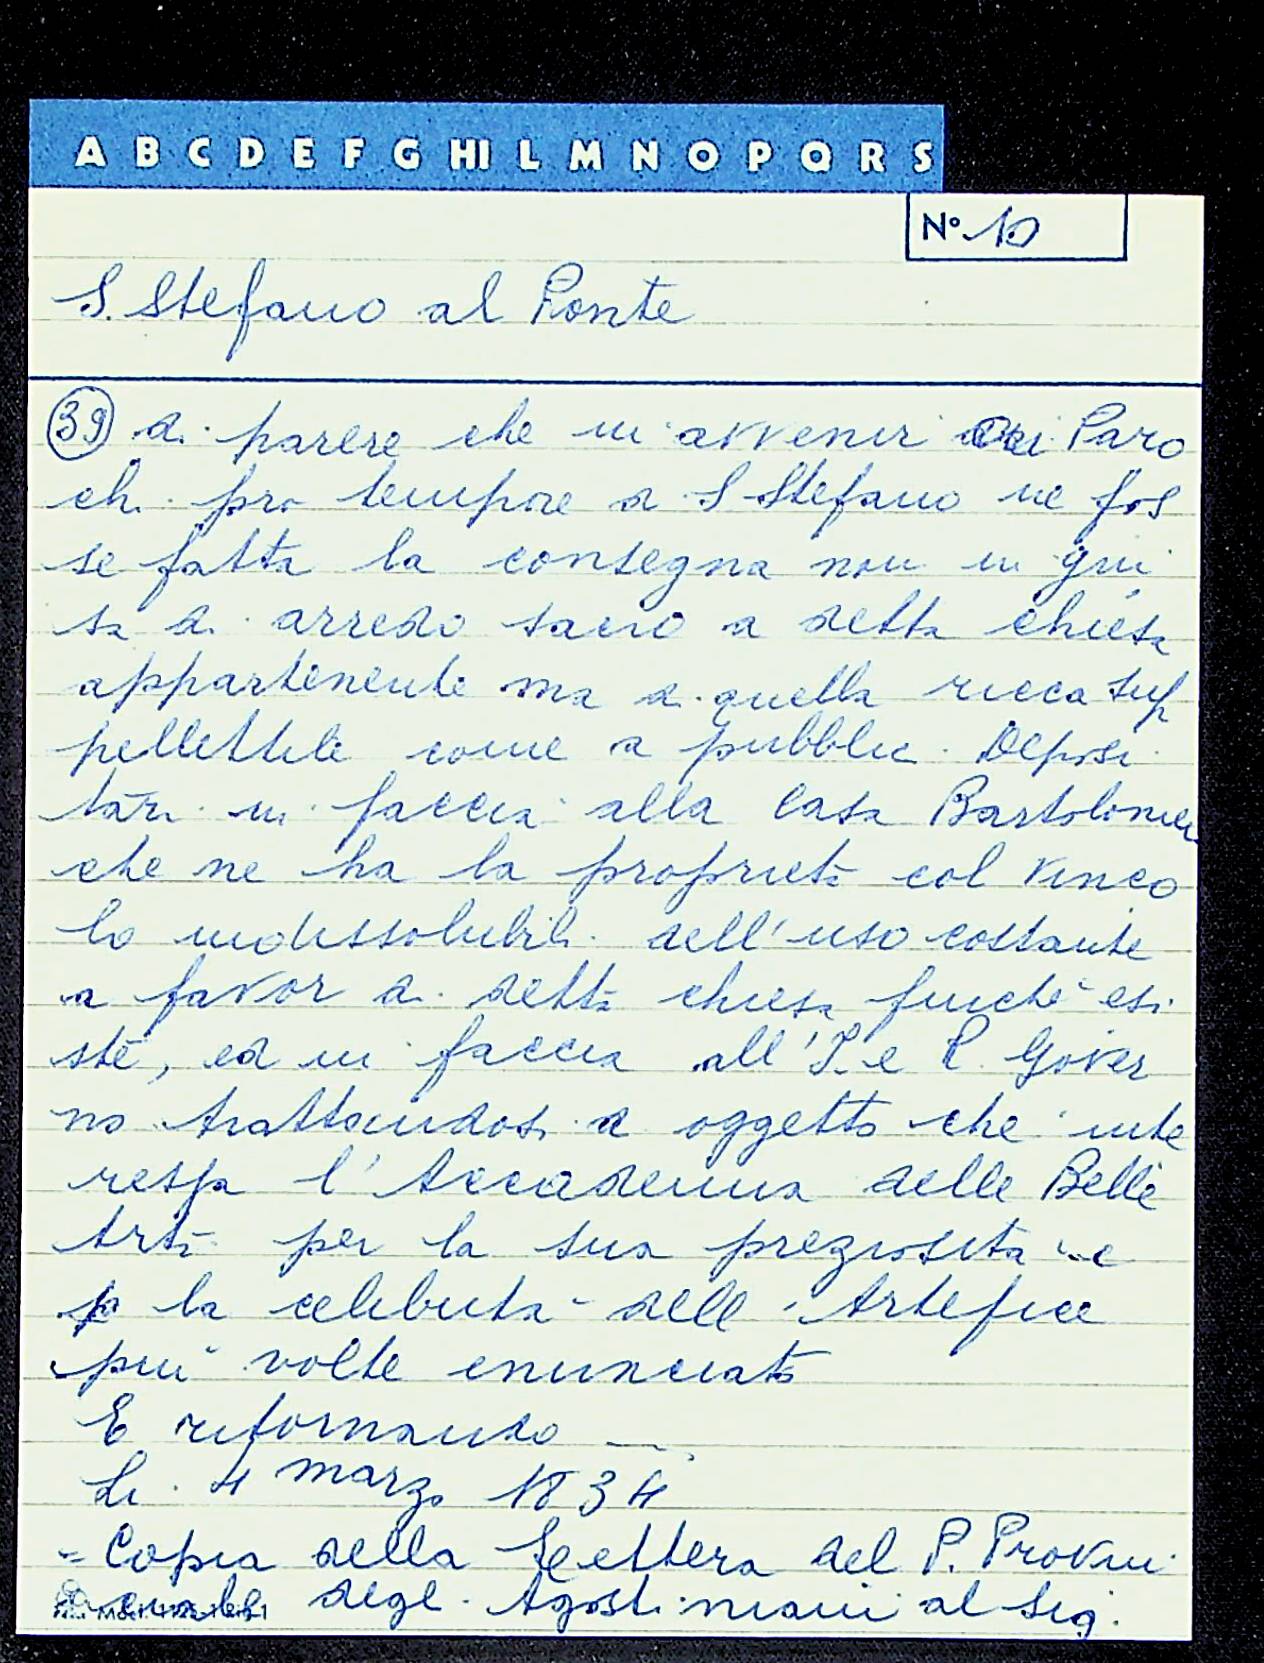 A B C D E F G HI L M N O P Q R S
N° 10
S. Stefano al Ponte
39 di parere che in avvenir dai Paro
chi pro tempore di S Stefano ne fos
se fatta la consegna non in gui
sa di arredo sacro a detta chiesa
appartenente ma di quella ricca sup
pellettile come a pubblici Deposi
tari in faccia alla Casa Bartolomei
che ne ha la proprietà col vinco
lo indissolubile dell'uso costante
a favor di detta chiesa finché esi
ste, ed in faccia all'I. e R. Gover
no trattandosi di oggetto che inte
ressa l'Accademia delle Belle
Arti per la sua preziosità e
p la celebrità dell'Artefice
più volte enunciato
E riformando
Li 4 marzo 1834
= Copia della Lettera del P. Provin
ciale degli Agostiniani al Sig.